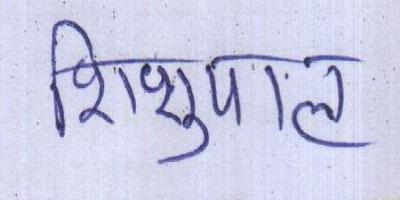 शिशुपाल